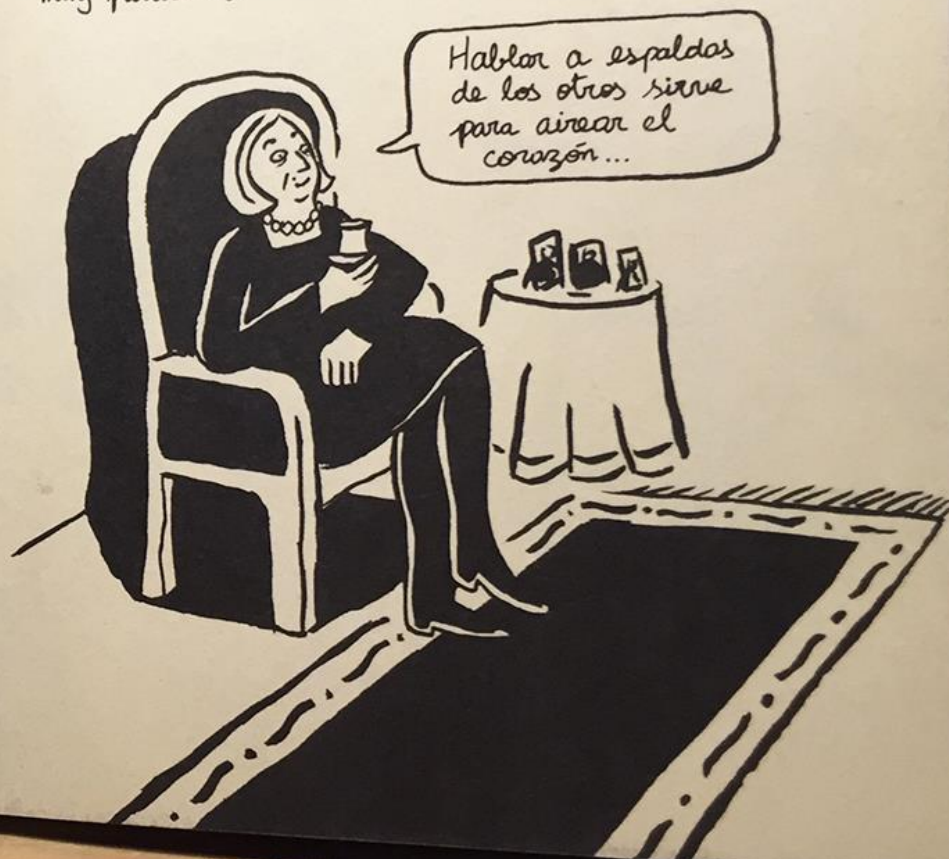 muy
Hablar a espaldas
de los otros sirve
para airear el
corazón...